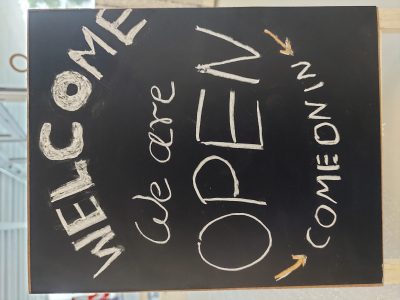 WELCOME
We are
OPEN
COME ON IN